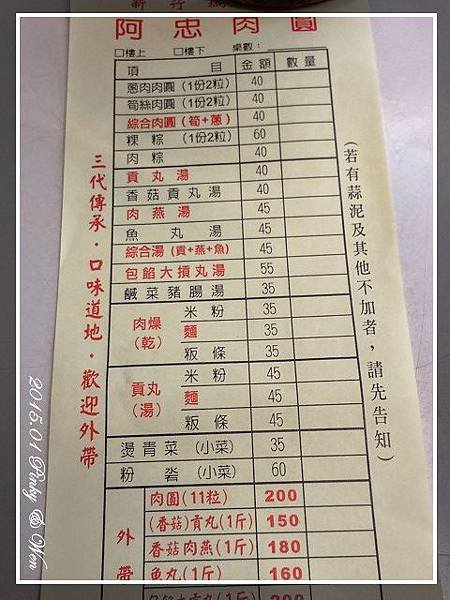 阿忠肉圓
□樓上 □樓下 桌數：
項目 金額 數量
蔥肉肉圓（1份2粒） 40
筍絲肉圓（1份2粒） 40
綜合肉圓（筍+蔥） 40
粿粽（1份2粒） 60
肉粽 40
貢丸湯 40
香菇貢丸湯 40
肉燕湯 45
魚丸湯 45
綜合湯（貢+燕+魚） 45
包餡大摃丸湯 55
鹹菜豬腸湯 35
肉燥（乾） 米粉 35
麵 35
粄條 35
貢丸（湯） 米粉 45
麵 45
粄條 45
燙青菜（小菜） 35
粉嗧（小菜） 60
外帶
肉圓(11粒) 200
(香菇)貢丸(1斤) 150
香菇肉燕(1斤) 180
魚丸(1斤) 160
三代傳承·口味道地·歡迎外帶
（若有蒜泥及其他不加者，請先告知）
2015.01 Pinky & Won